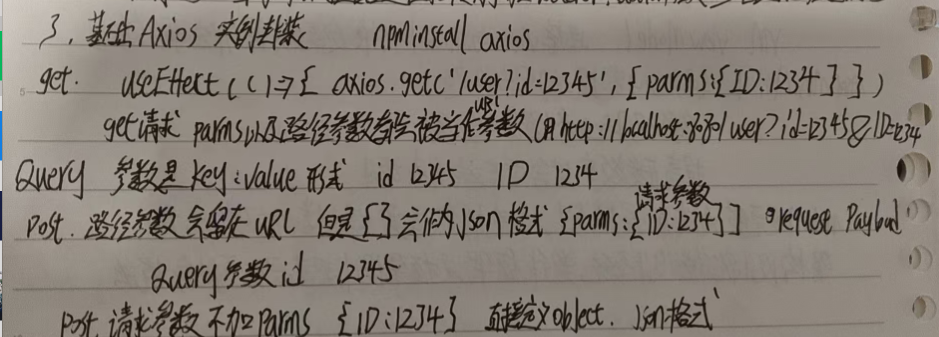 3、基础Axios 实例封装 npm install axios
get. useEffect(()=>{ axios.get('/user?id=12345', { parms:{ID:1234} })
get请求 parms以及路径参数都会被当作URL参数(如http://localhost:8080/user?id=12345&ID=1234
Query 参数是 key:value 形式 id 12345 ID 1234
Post. 路径参数 会留在URL 但是{}会作为Json格式 {parms:{ID:1234}} 请求参数 request Payload
Query参数 id 12345
Post 请求参数 不加Parms {ID:1234} 直接定义object. Json格式